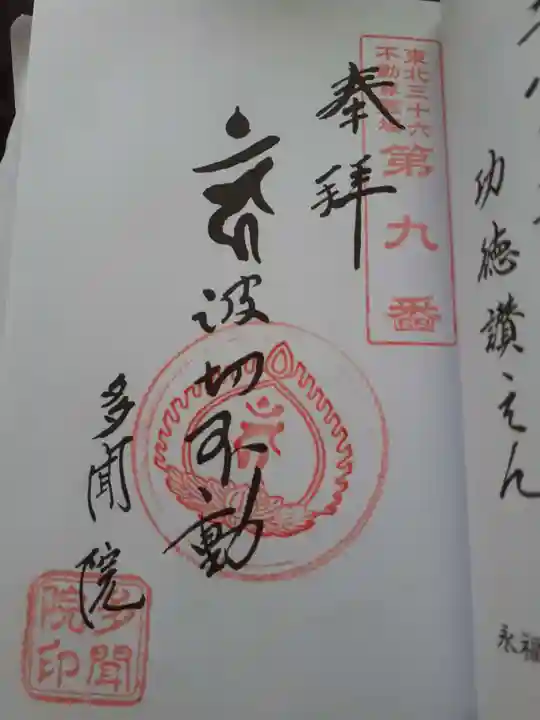 東北三十六
不動尊霊場
第九番
奉拝
波切不動
多聞院
多聞
院印
功徳讃えん
永福